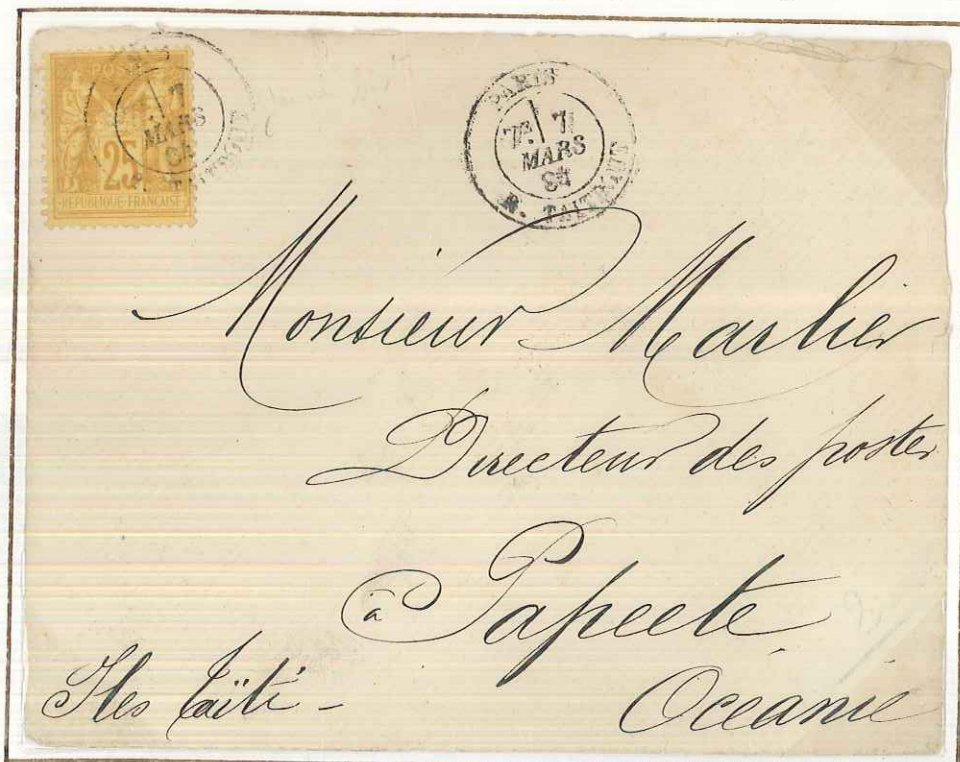 POSTE
25
RÉPUBLIQUE FRANÇAISE
7
MARS
PARIS
7E 7
MARS
84
R. TAITBOUT
Monsieur Marlier
Directeur des postes
à Papeete
Iles Taïti - Océanie